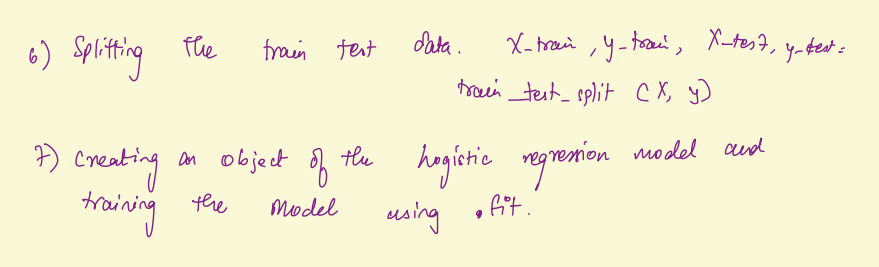 6) Splitting the train test data. X_train, y_train, X_test, y_test =
train_test_split (X, y)
7) Creating an object of the Logistic regression model and
training the model using .fit.